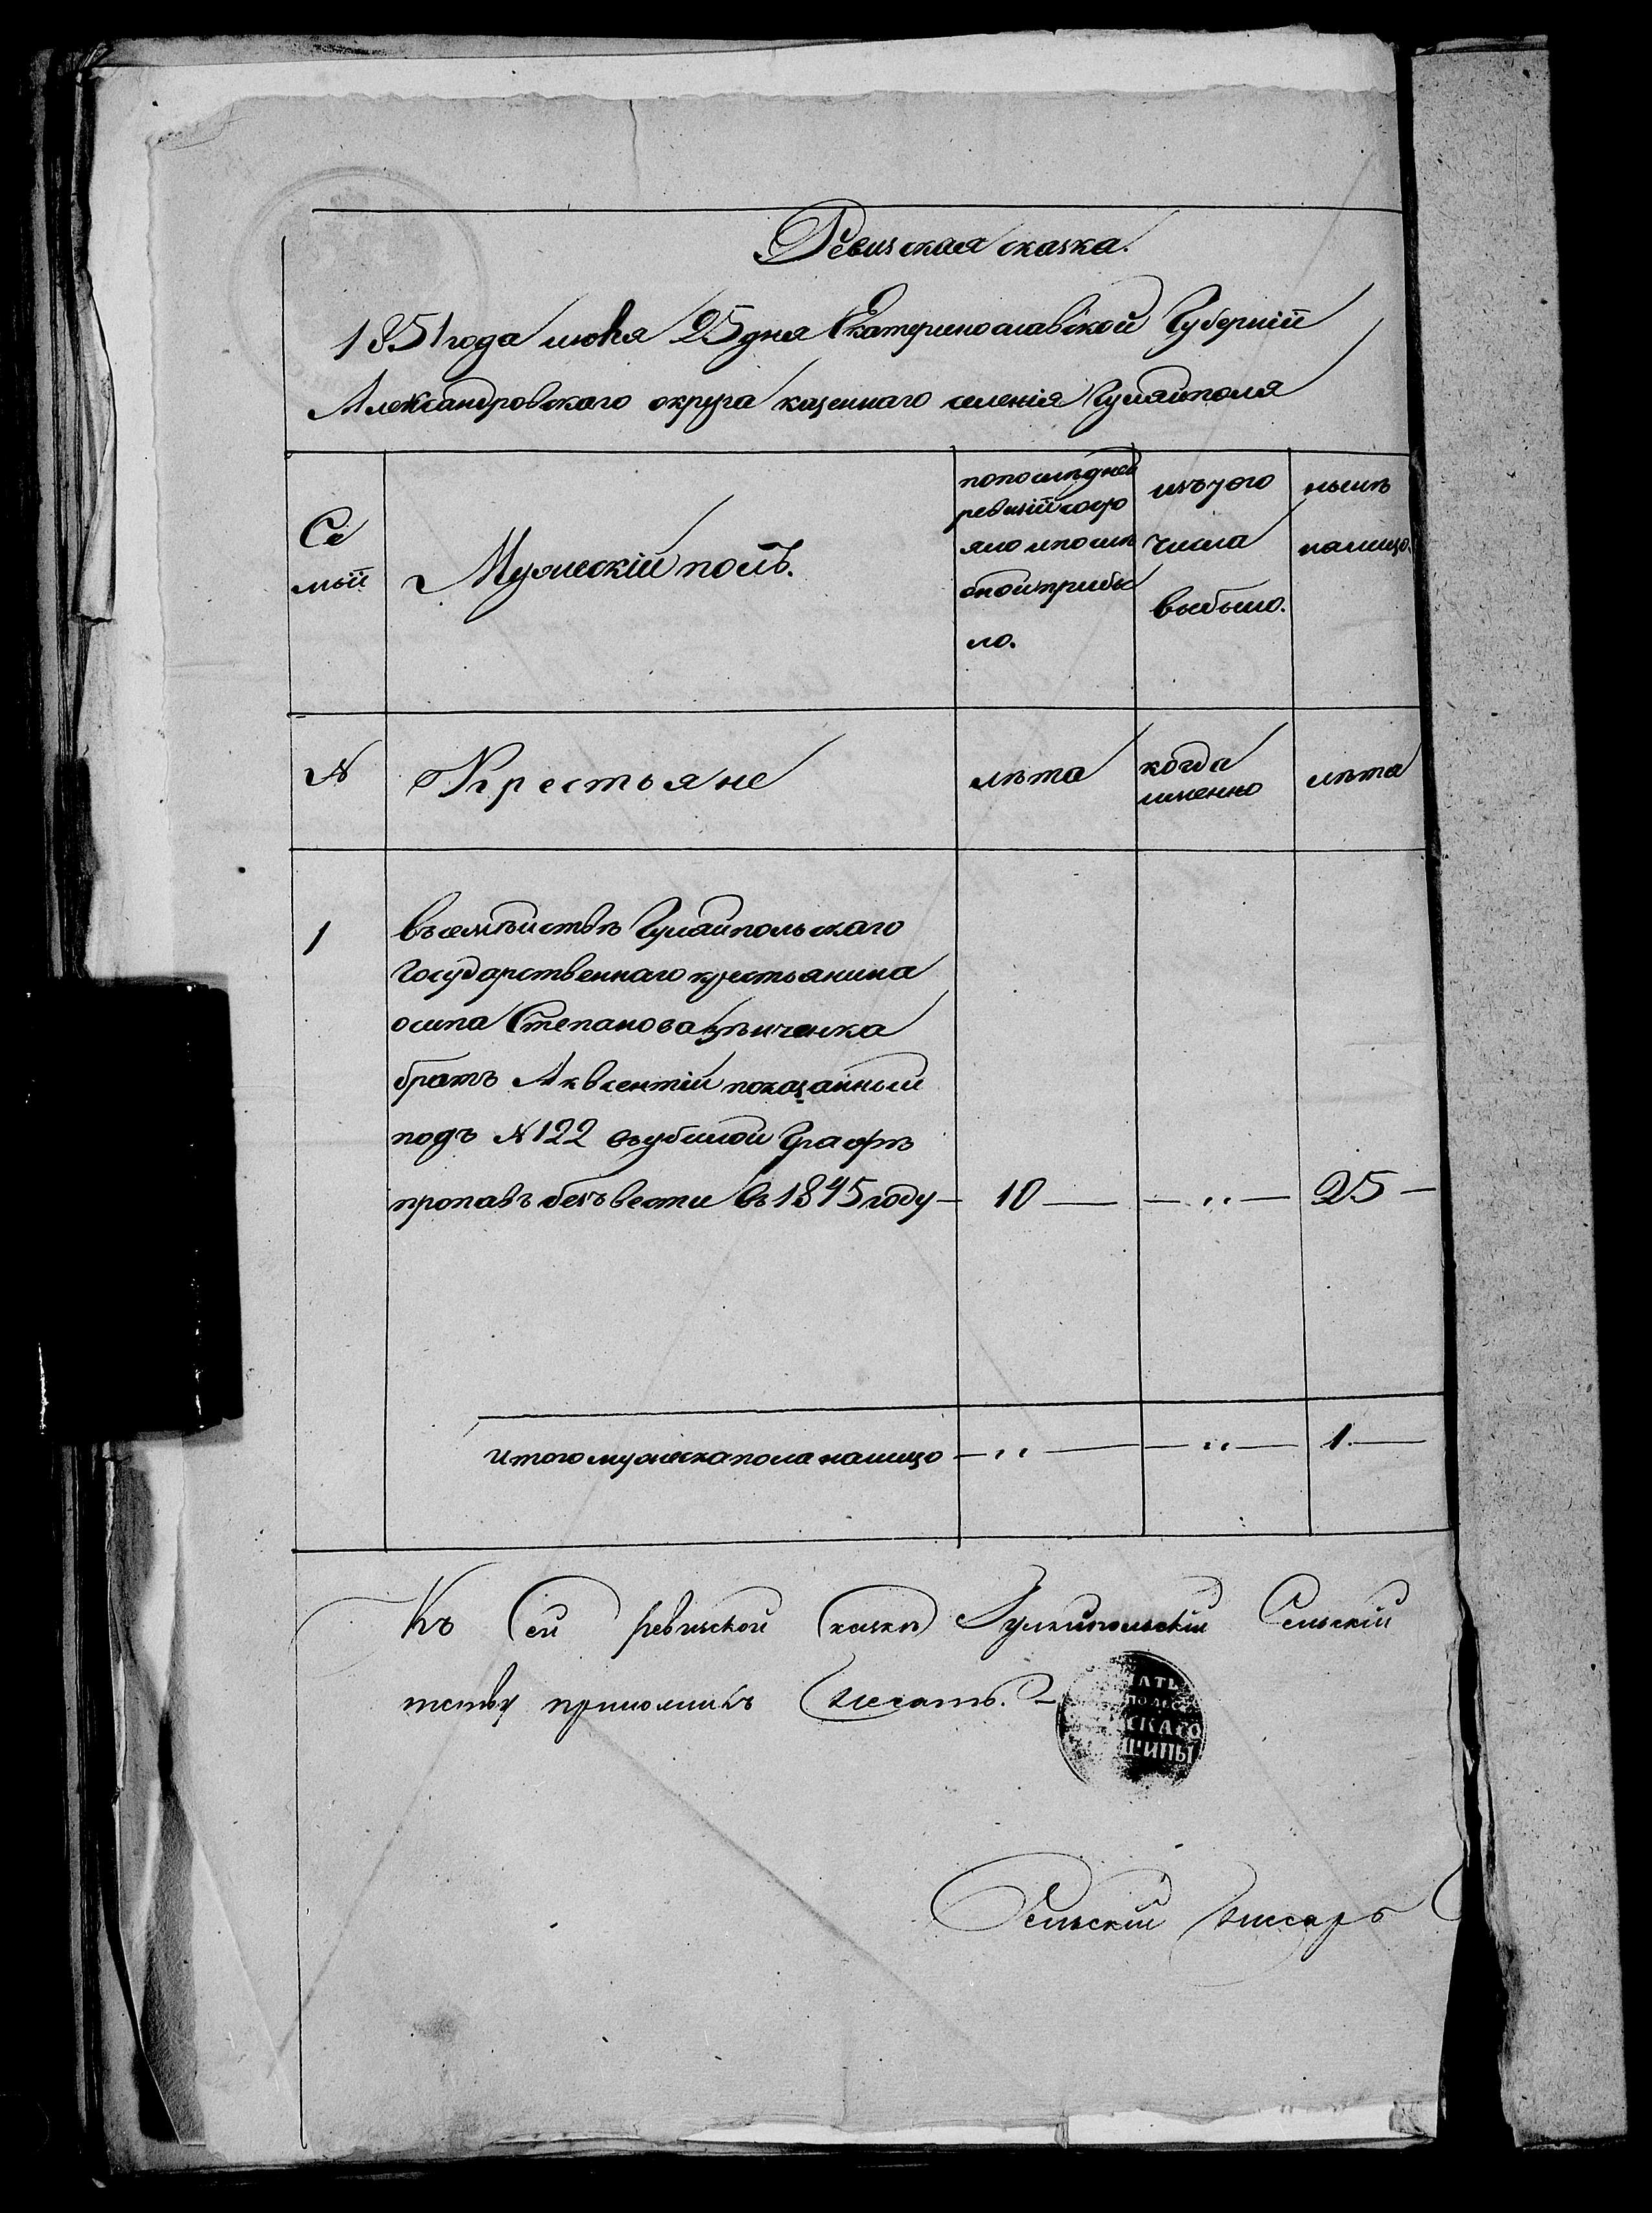 Ревизская сказка.
1851 года июня 25 дня Екатеринославской Губернiи
Александровского округа казеннаго селенiя Гуляйполя
Се
мьи
Мужескiй полъ.
по последней
ревизiи состо
яло и после
оной прибы
ло.
изъ того
числа
выбыло.
ныне
налицо.
№
Крестьяне
лѣта
когда
именно
лѣта
1
въ семѣйствѣ Гуляйпольскаго
Государственнаго крестьянина
осипа Степанова
братъ Авксентiй показанный
подъ № 122 въ убылой Графѣ
пропавъ безъ вести въ 1845 году — 10 — — „ — 25 —
итого мужеска пола налицо — „ — — „ — 1 —
Къ Сей ревизской сказкѣ Гуляйпольскiй Сельскiй
печать.
СКАГО
ШИНЫ
Сельскiй Писарь